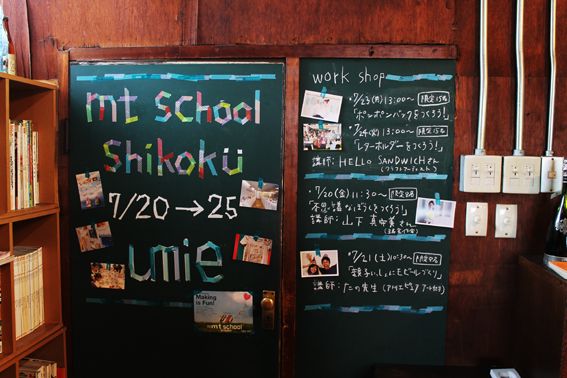 mt school
Shikoku
7/20→25
umie
Making is Fun!
mt school
work shop
・7/23(月)13:00〜 限定15名
「ポンポンバッグをつくろう!」
・7/24(火)13:00〜 限定15名
「レターホルダーをつくろう!」
講師:HELLO SANDWICHさん
(クラフトアーティスト)
・7/20(金)11:30〜
「不思議なぼうしをつくろう」
講師:山下
・7/21(土)10:30〜
「親子いっしょにモビールづくり」
講師: